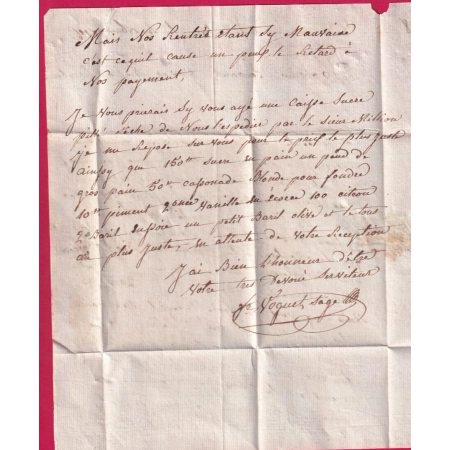 Mais Nos Rentrés etant Sy Mauvaise
c'est ce quil cause un peu le Retard à
Nos payement,
Je Vous prirais Sy vous aye une Caisse Sucre
de Nous l'espedier par le sieur Million
je me Repose Sur Vous pour le prix le plus juste
ainsy que 150# Sucre en pain un peu de
gros pain 50# Cassonade Blonde pour fondre
10# piment 2 once Vanille 100 citron
2 Baril un petit Baril olive et le tous
au plus Juste, en attente de Votre Reception
J'ai Bien L'honneur d'être
Votre tres Devoué Serviteur
Voguet Sage